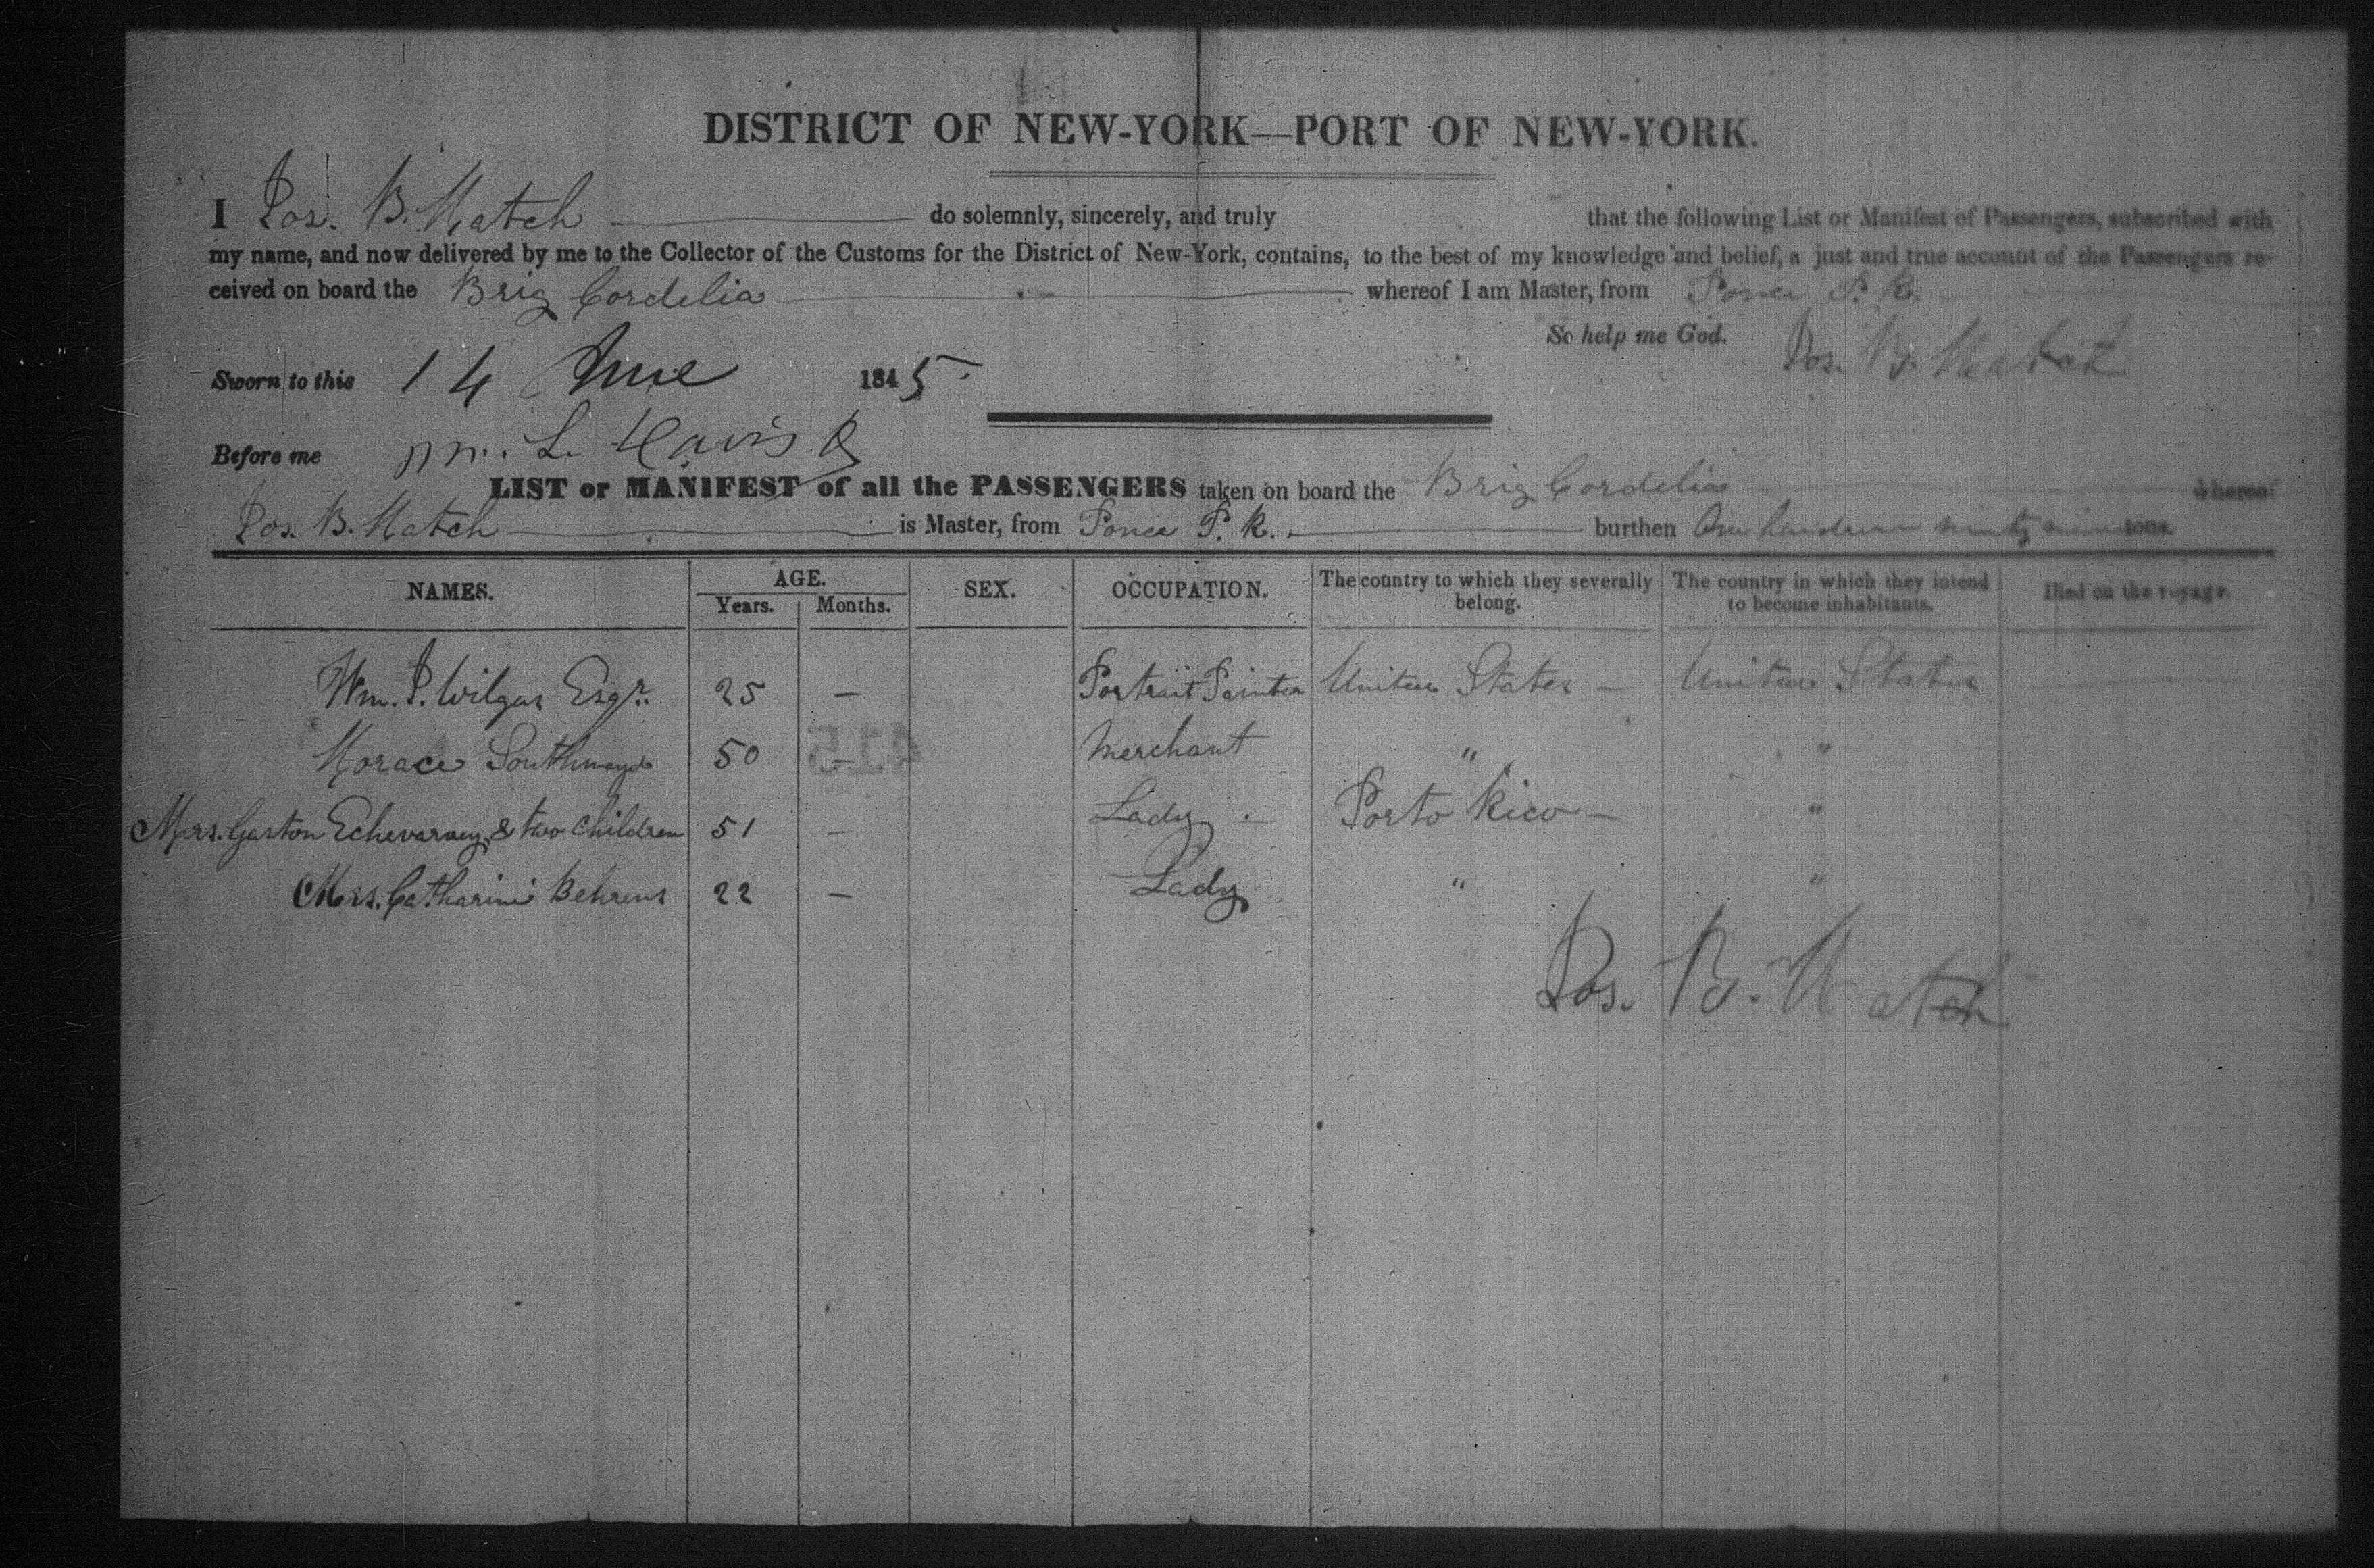 DISTRICT OF NEW-YORK—PORT OF NEW-YORK.
I Jos. B. Hatch do solemnly, sincerely, and truly that the following List or Manifest of Passengers, subscribed with
my name, and now delivered by me to the Collector of the Customs for the District of New-York, contains, to the best of my knowledge and belief, a just and true account of the Passengers re-
ceived on board the Brig Cordelia whereof I am Master, from Ponce P. R.
So help me God. Jos. B. Hatch
Sworn to this 14 June 1845
Before me L. Davis
LIST or MANIFEST of all the PASSENGERS taken on board the Brig Cordelia whereof
Jos. B. Hatch is Master, from Ponce P. R. burthen One hundred ninety tons.
NAMES. AGE. Years. Months. SEX. OCCUPATION. The country to which they severally belong. The country in which they intend to become inhabitants. Died on the voyage.
Wm. P. Wilgus Esqr. 25 — Portrait Painter United States — United States
Horace Southmayd 50 — Merchant " "
Mrs. Gaston Echevarney & two children 51 — Lady. Porto Rico — "
Mrs. Catharine Behrens 22 — Lady " "
Jos. B. Hatch